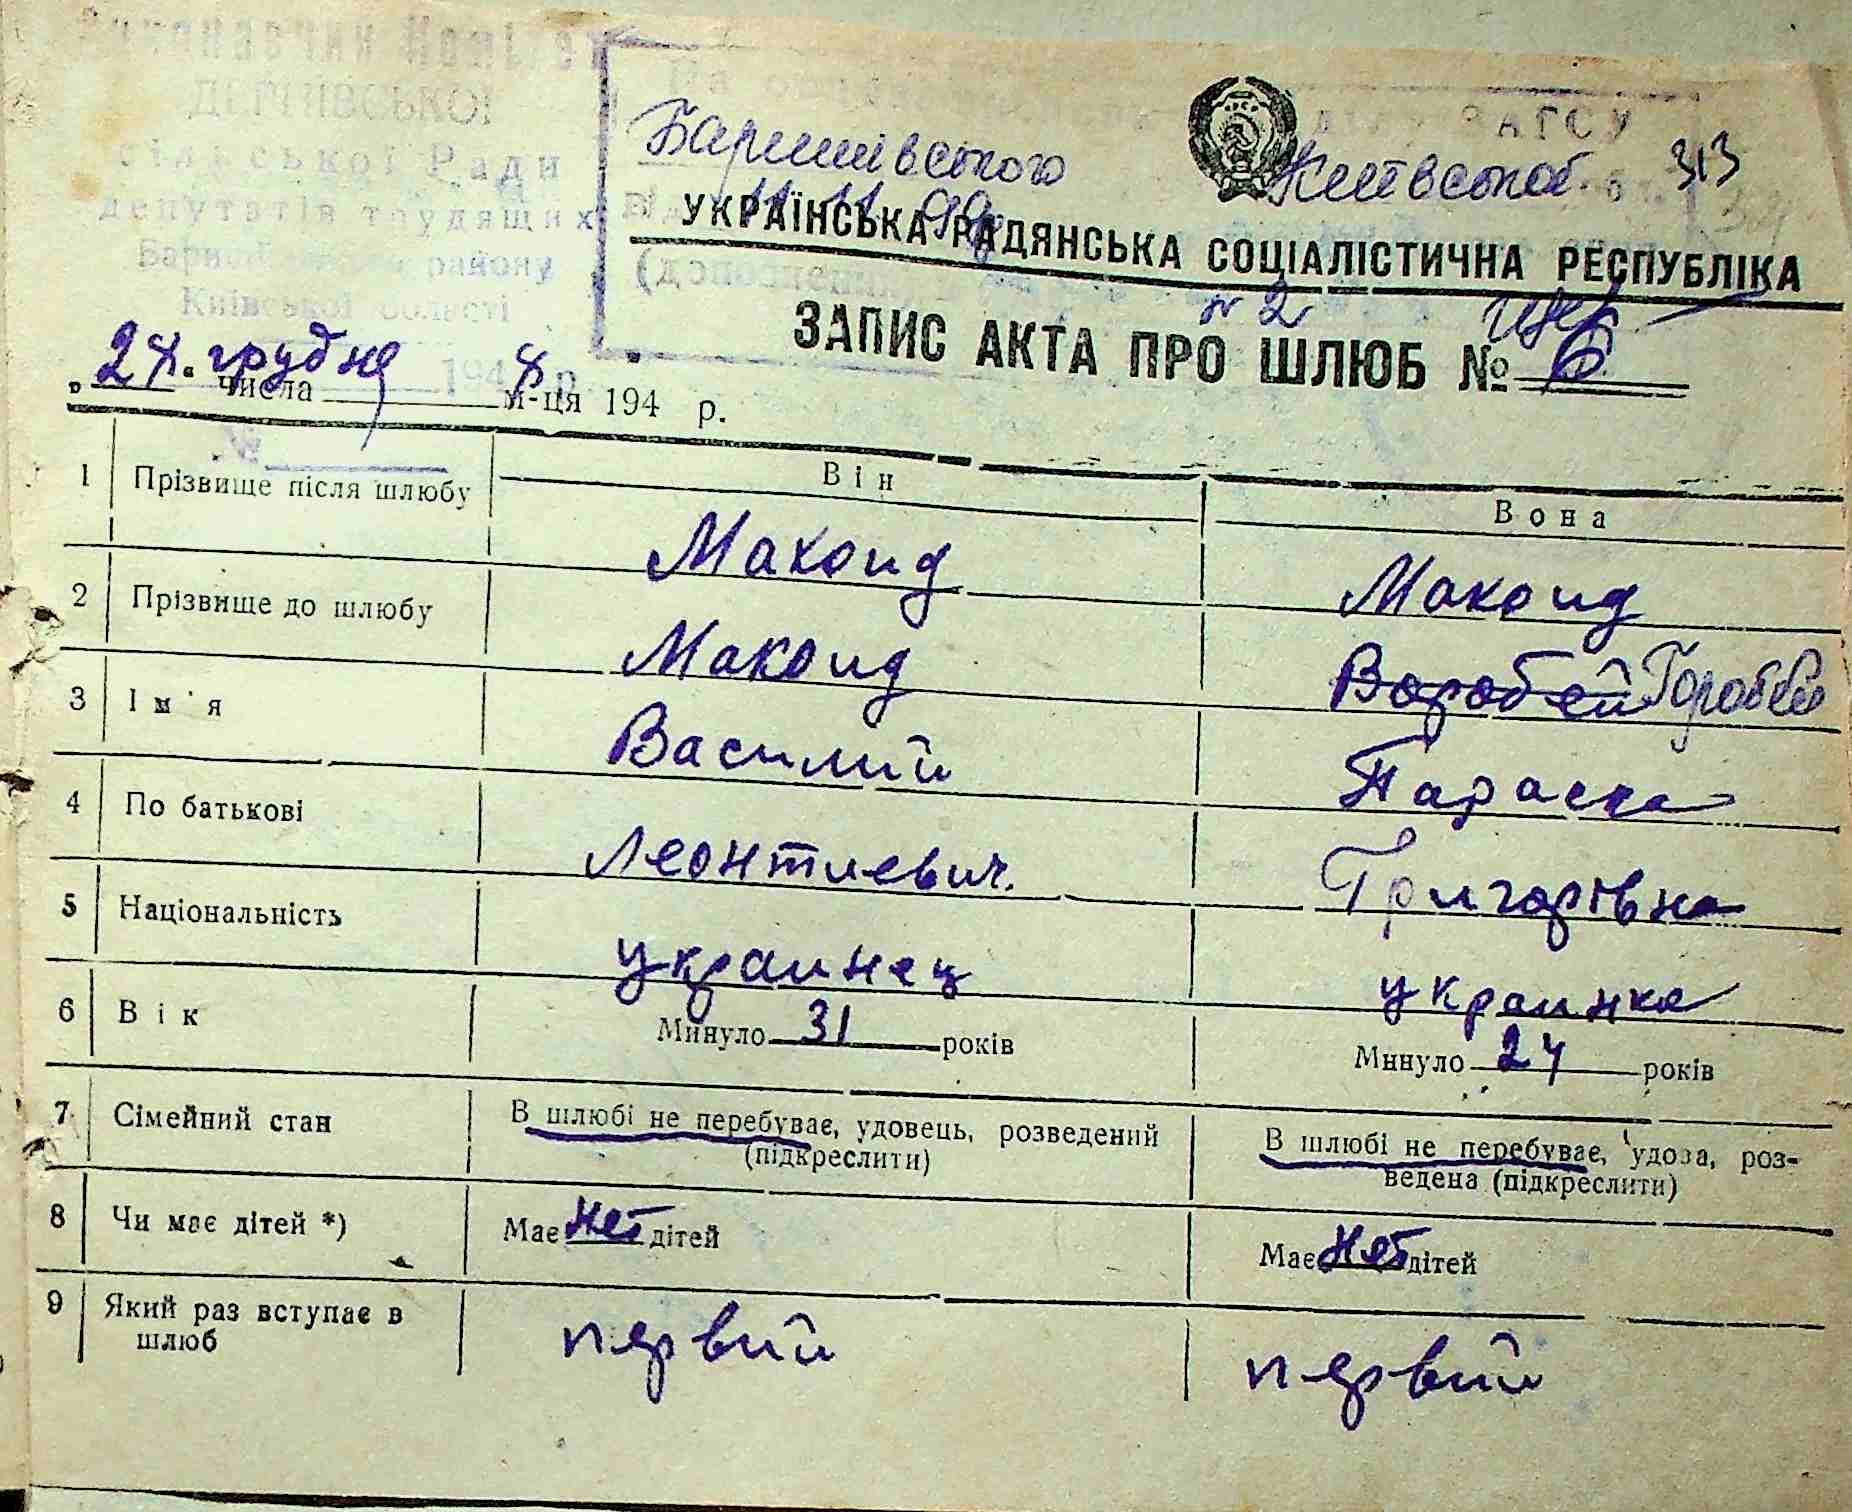 Виконавчий Комітет
ДЕРНІВСЬКОЇ
сільської Ради
депутатів трудящих
району
Київської області
ЗАГСУ
Баришівського Київської 313
11.11.99
УКРАЇНСЬКА РАДЯНСЬКА СОЦІАЛІСТИЧНА РЕСПУБЛІКА
№ 2
ЗАПИС АКТА ПРО ШЛЮБ № 6
194 8 р.
„ 24. грудня числа м-ця 194 р.
Він Вона
1 Прізвище після шлюбу Макоид Макоид
2 Прізвище до шлюбу Макоид Воробей Горобей
3 Ім'я Василий Параска
4 По батькові Леонтиевич. Григорівна
5 Національність украинец украинка
6 Вік Минуло 31 років Минуло 24 років
7 Сімейний стан В шлюбі не перебуває, удовець, розведений В шлюбі не перебуває, удова, роз-
(підкреслити) ведена (підкреслити)
8 Чи має дітей *) Має нет дітей Має нет дітей
9 Який раз вступає в
шлюб первий первий